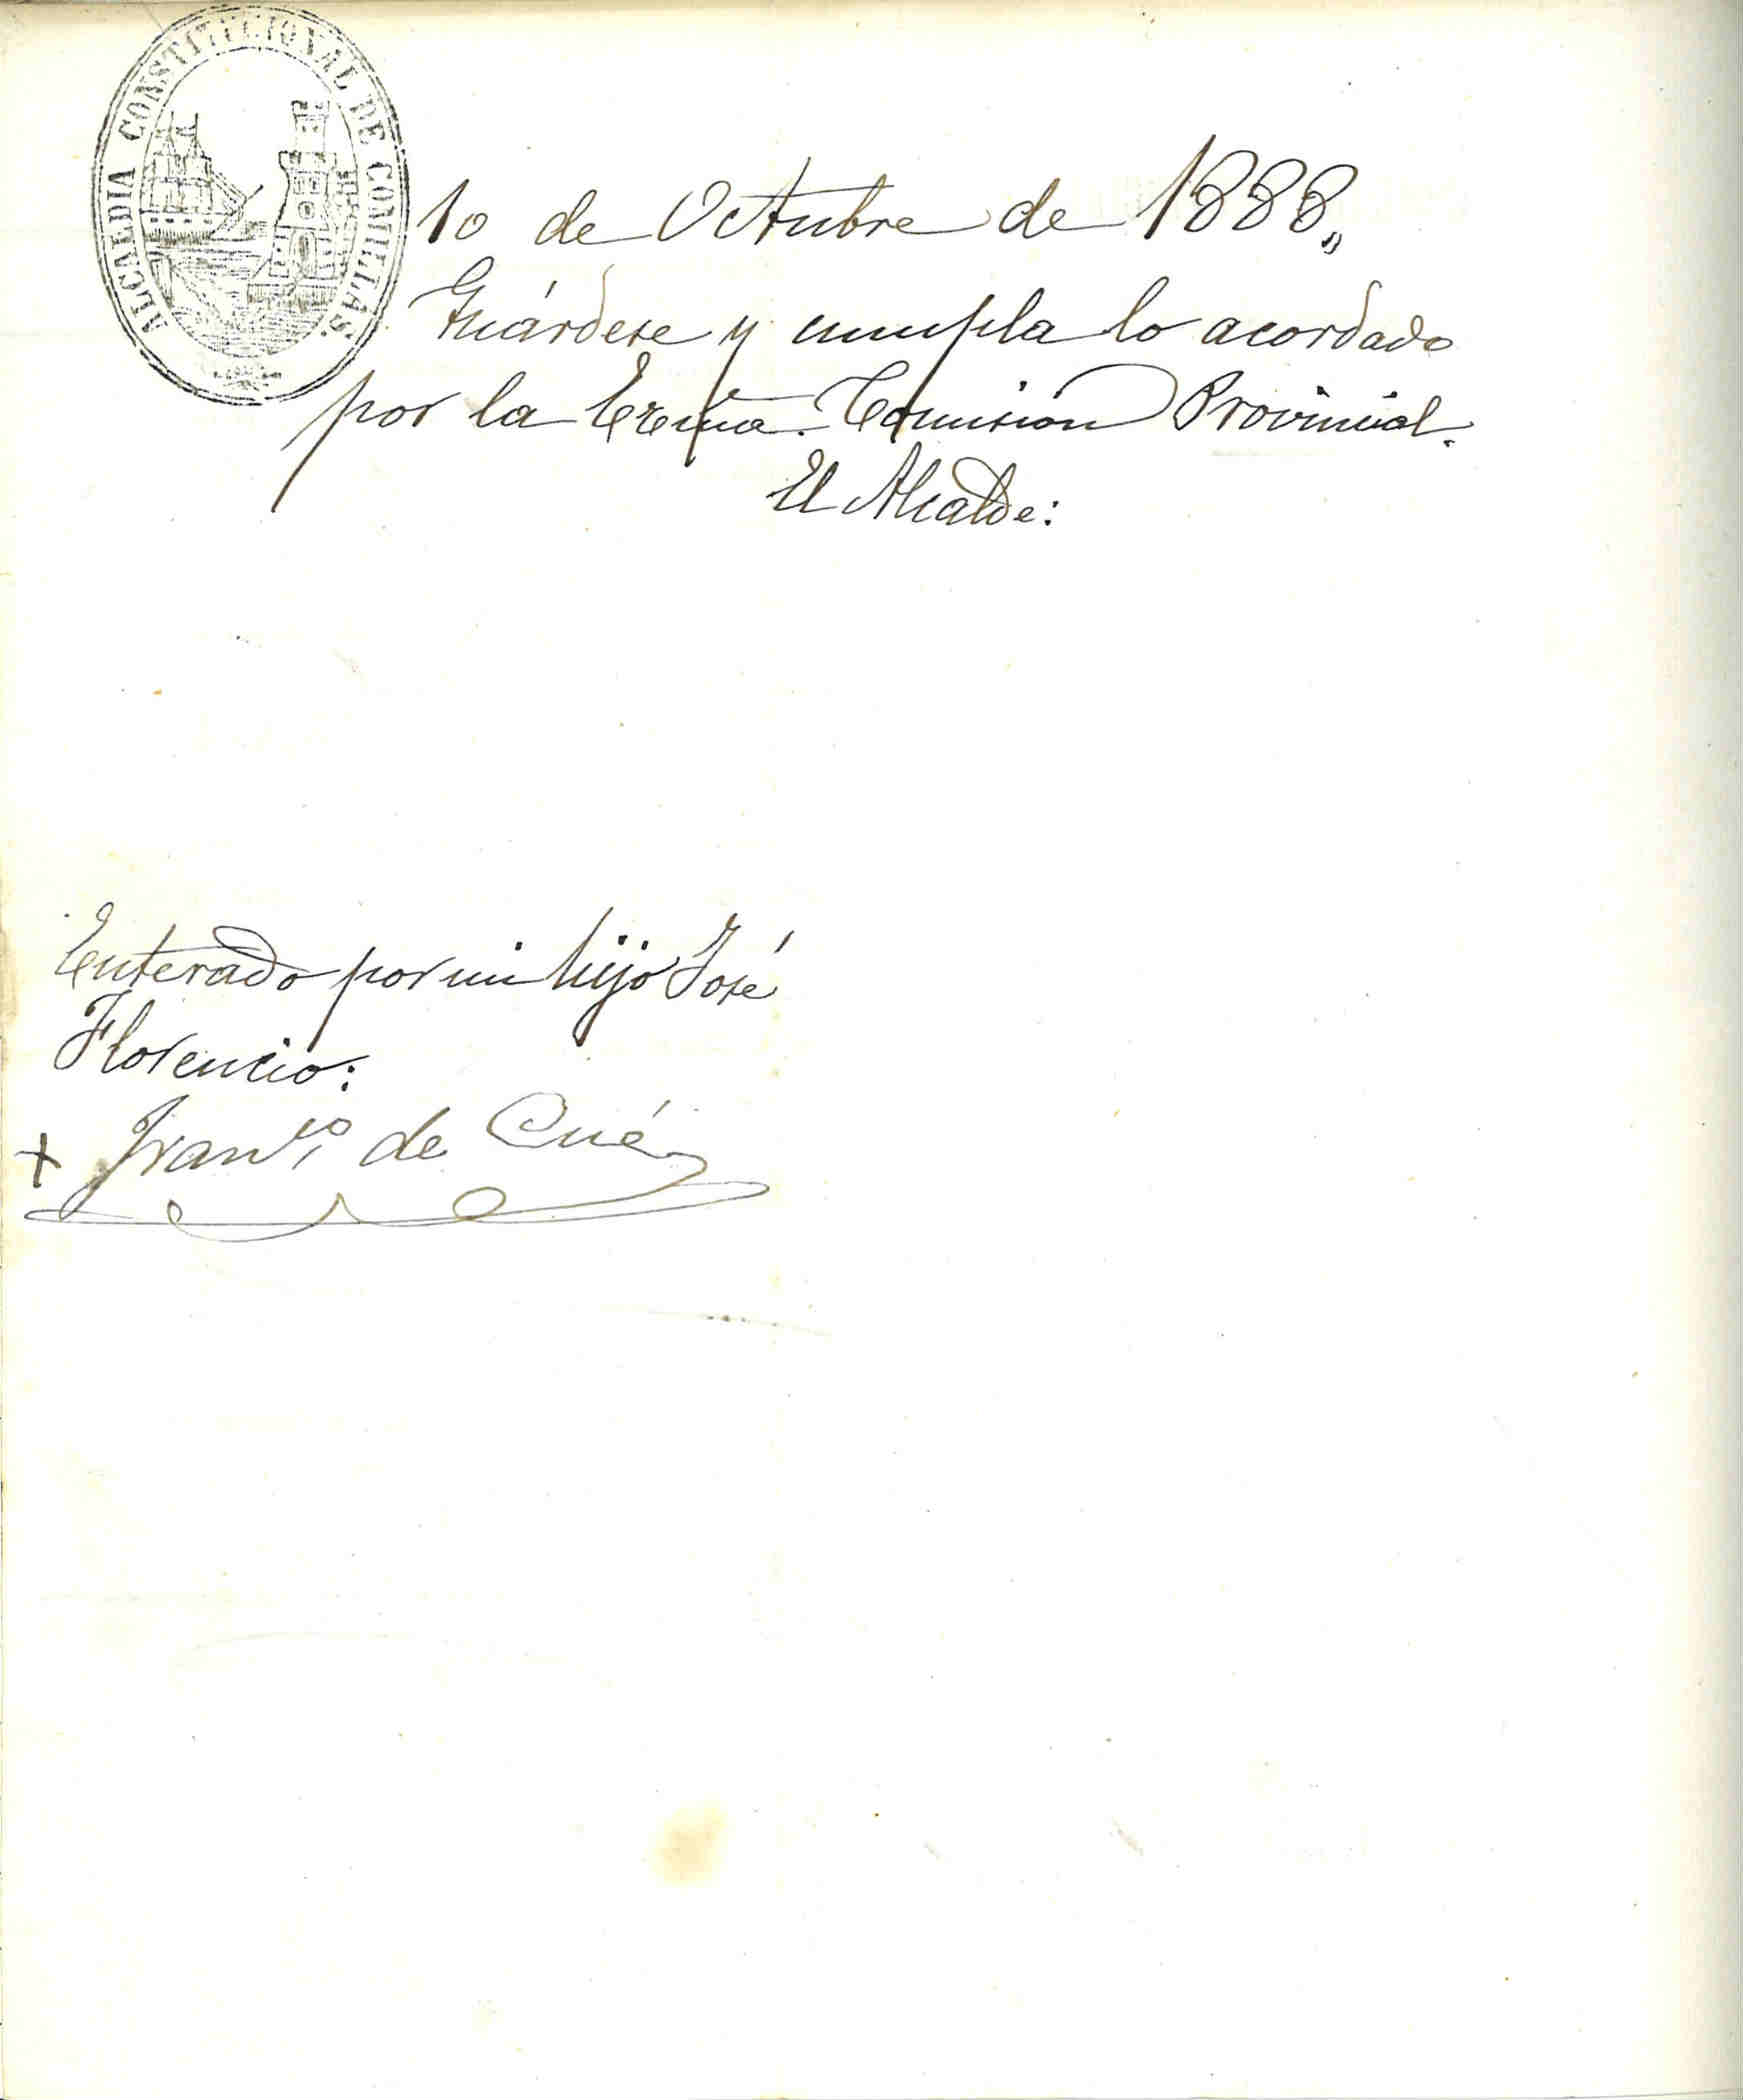 ALCALDIA CONSTITUCIONAL DE COMILLAS.
10 de Octubre de 1888„
Guárdese y cumpla lo acordado
por la Exma. Comisión Provincial.
El Alcalde:
Enterado por mi hijo José
Florencio:
+ Franco. de Cué